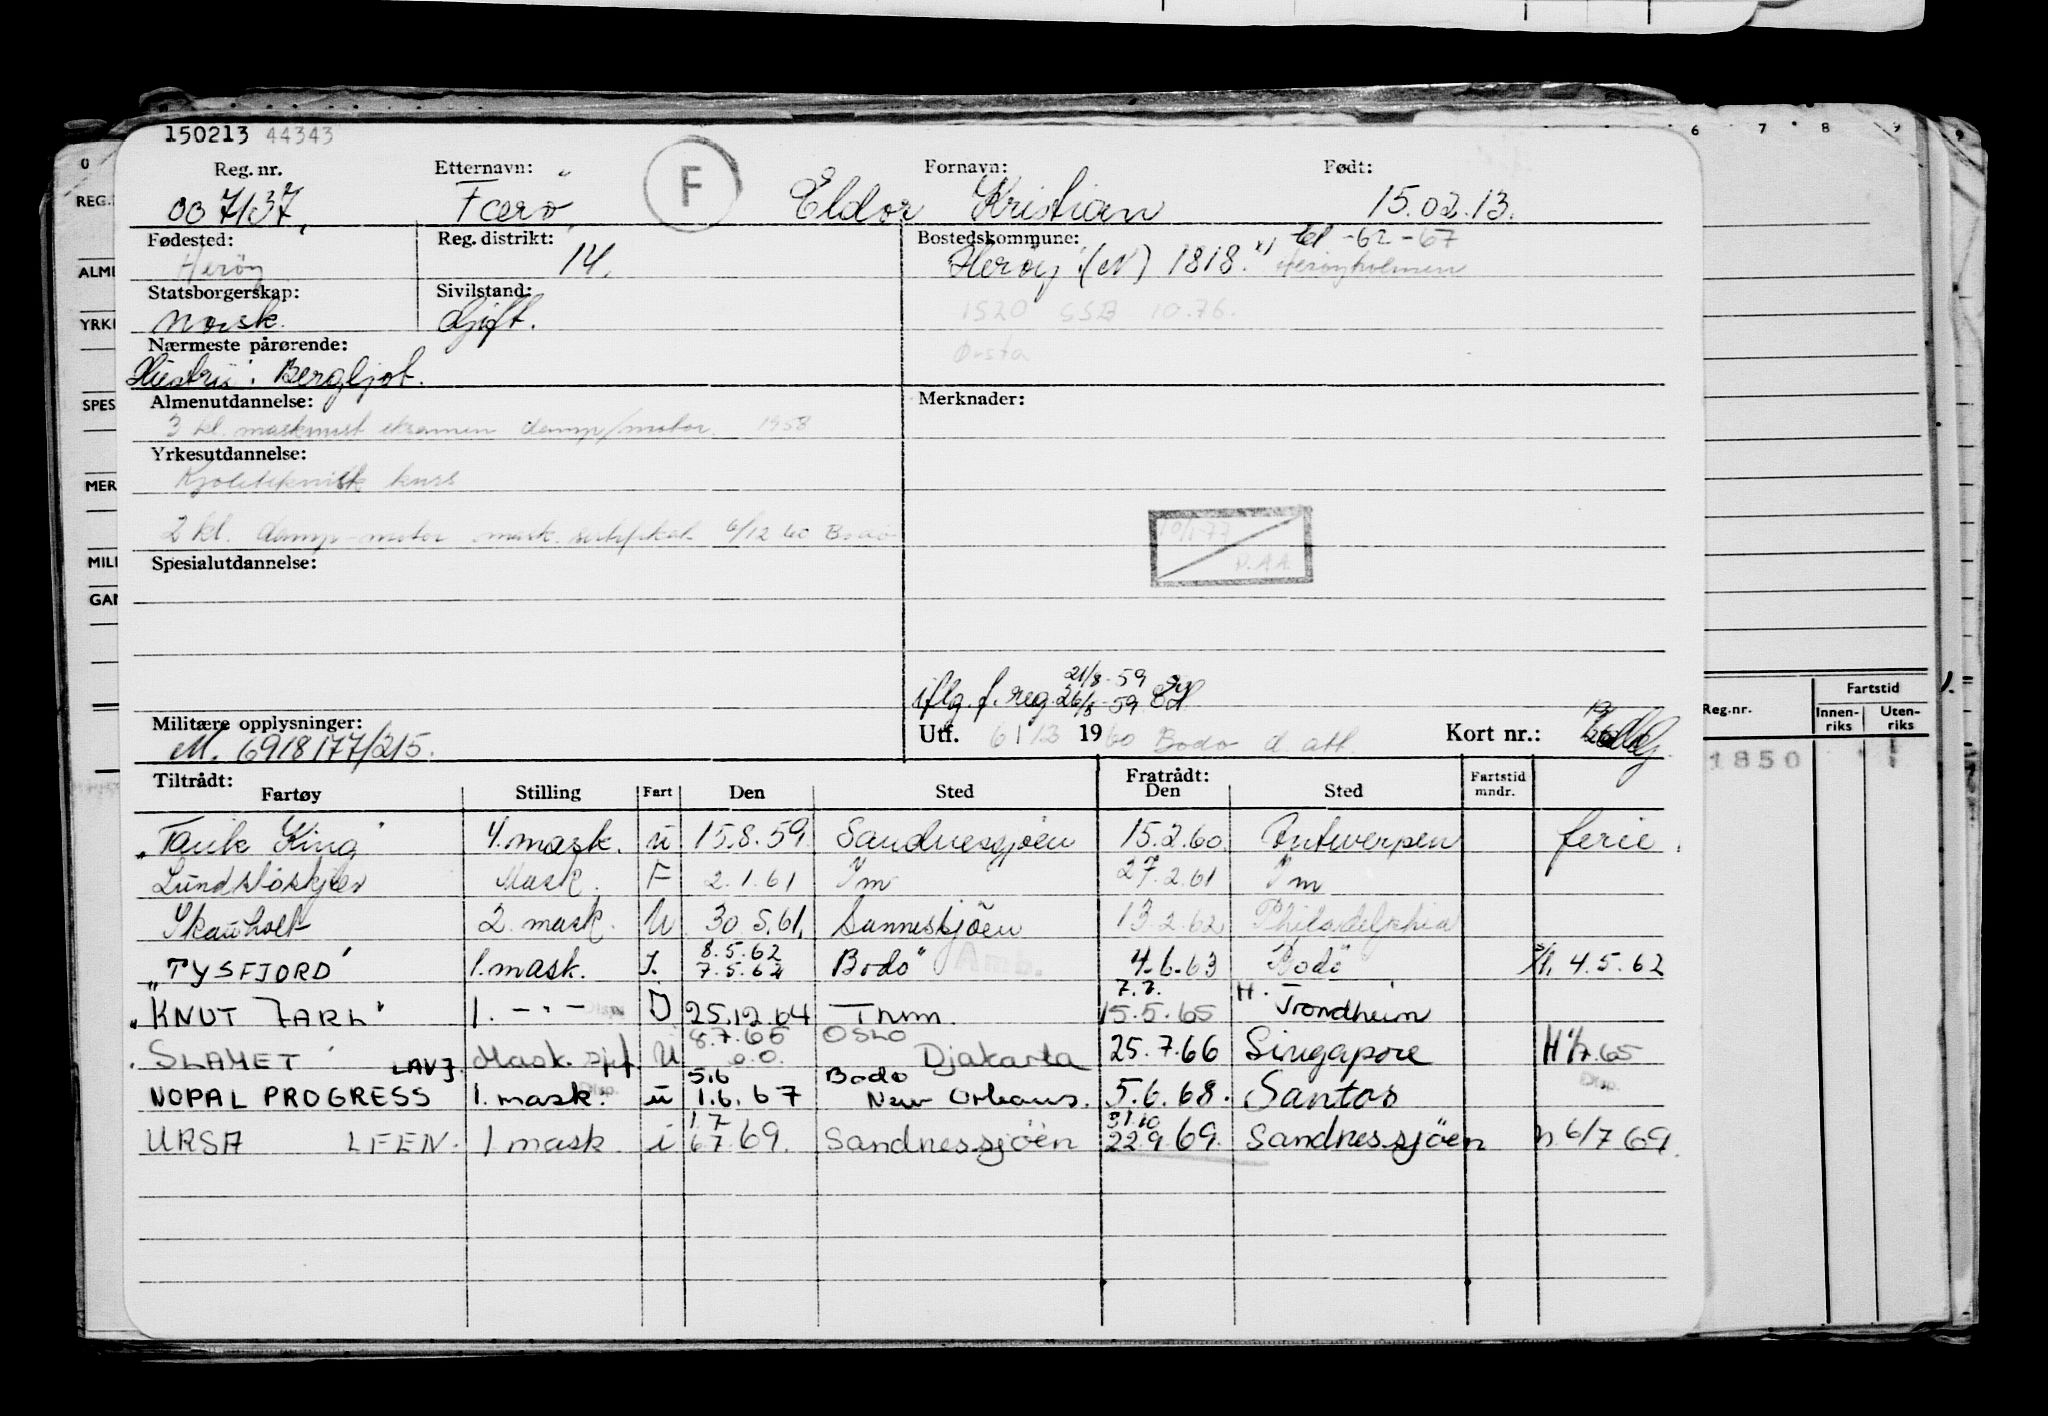 150213 44343
Reg. nr. Etternavn: F Fornavn: Født:
007137, Færö Eldor Kristian 15.02.13.
Fødested: Reg. distrikt: Bostedskommune:
Herøy 14. Herøy (N) 1818. x) 61 -62-67 Herøyholmen
Statsborgerskap: Sivilstand:
Norsk. Gift. 1520 SSB 10.76.
Nærmeste pårørende: Ørsta
Hustru: Bergljot.
Almenutdannelse: Merknader:
3 kl. maskinist eksamen damp/motor. 1958
Yrkesutdannelse:
Kjøleteknisk kurs
2 kl. damp-motor mask. sertifikat 6/12 60 Bodö
10/1-77
P.AA.
Spesialutdannelse:
21/8-59
iflg. f. reg. 26/8-59
Militære opplysninger: Utf. 6/12 1960 Bodö d. att. Kort nr.:
M. 6918177/215.
Tiltrådt: Fratrådt:
Fartøy Stilling Fart Den Sted Den Sted Fartstid mndr.
"Tank King" 4. mask. u 15.8.59 Sandnesjöen 15.2.60 Antwerpen ferie.
Lundsløskjær Mask. F 2.1.61 Ym 27.2.61 Ym
Skauholt 2. mask. U 30.5.61. Sannesjöen 13.2.62 Philadelphia
8.5.62
"TYSFJORD" 1. mask. I. 7.5.62 Bodö Amb. 4.6.63 Bodö 4.5.62
7.7. H.
"KNUT JARL" 1. -"- Disp. I 25.12.64 Thm. 15.5.65 Trondheim
8.7.65 OSLO
SLAMET LAVJ. Mask. sjef U 0.0. Djakarta 25.7.66 Singapore H 1/7.65
5.6 Bodö Disp.
NOPAL PROGRESS 1. mask. Disp. u 1.6.67 New Orleans. 5.6.68. Santos
1.7 31.10
URSA LEEN. 1 mask. i 6.7.69. Sandnessjöen 22.9.69. Sandnessjöen h. 6/7 69.
0 REG. ALME YRK SPES MER MILI GAN
6 7 8 9
Reg.nr. Fartstid
Innen-riks Uten-riks
1850